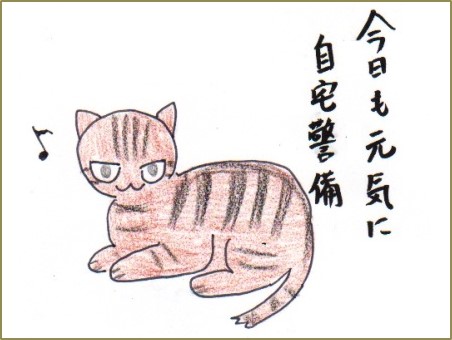 今日も元気に
自宅警備